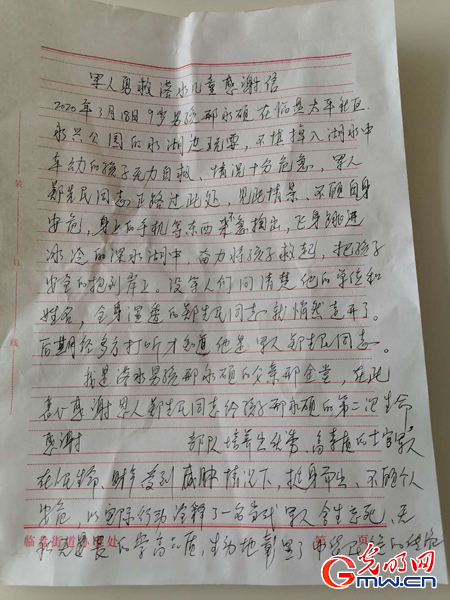 军人勇救落水儿童感谢信
2020年3月18日9岁男孩邢永硕在临邑大车社区
永兴公园的永湖边玩耍,不慎掉入湖水中
年幼的孩子无力自救、情况十分危急,军人
郑先民同志正路过此处,见此情景、不顾自身
安危,身上的手机等东西来不急掏出,飞身跳进
冰冷的深水湖中,奋力将孩子救起,把孩子
安全的抱到岸上。没等人们问清楚他的单位和
姓名,全身湿透的郑先民同志就悄然走开了。
后期经多方打听才知道他是军人郑先民同志。
我是落水男孩邢永硕的父亲邢金堂,在此
衷心感谢军人郑先民同志给孩子邢永硕的第二次生命
感谢 部队培养出优秀、高素质的士官军人
在人民生命、财产受到威胁情况下,挺身而出、不顾个人
安危,以实际行动诠释了一名当代军人舍生忘死,无
的崇高品质,生动地彰显了
临 街道办 处 第 页
装 订 线
光明网
Gmw.cn